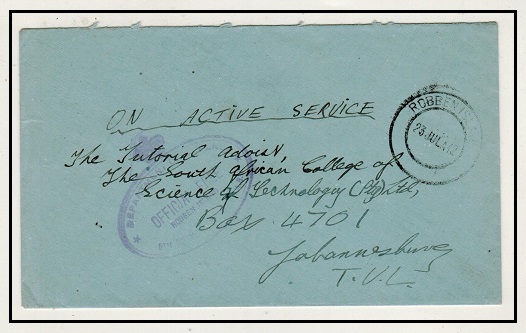 ON ACTIVE SERVICE
The Tutorial Advisr,
The South African College of
Science & Technology (Pty) Ltd,
Box 4701
Johannesburg
T.V.L.
ROBBEN
23 JUL
OFFICI